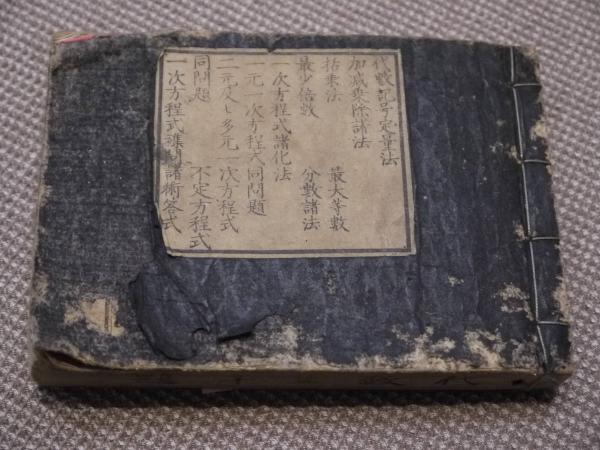 代数記号定量法
加減乗除諸法
括乗法 最大等数
最少倍数 分数諸法
一次方程式諸化法
一元一次方程式同問題
二元及ヒ多元一次方程式
同問題 不定方程式
一次方程式雑問諸術答式
代数